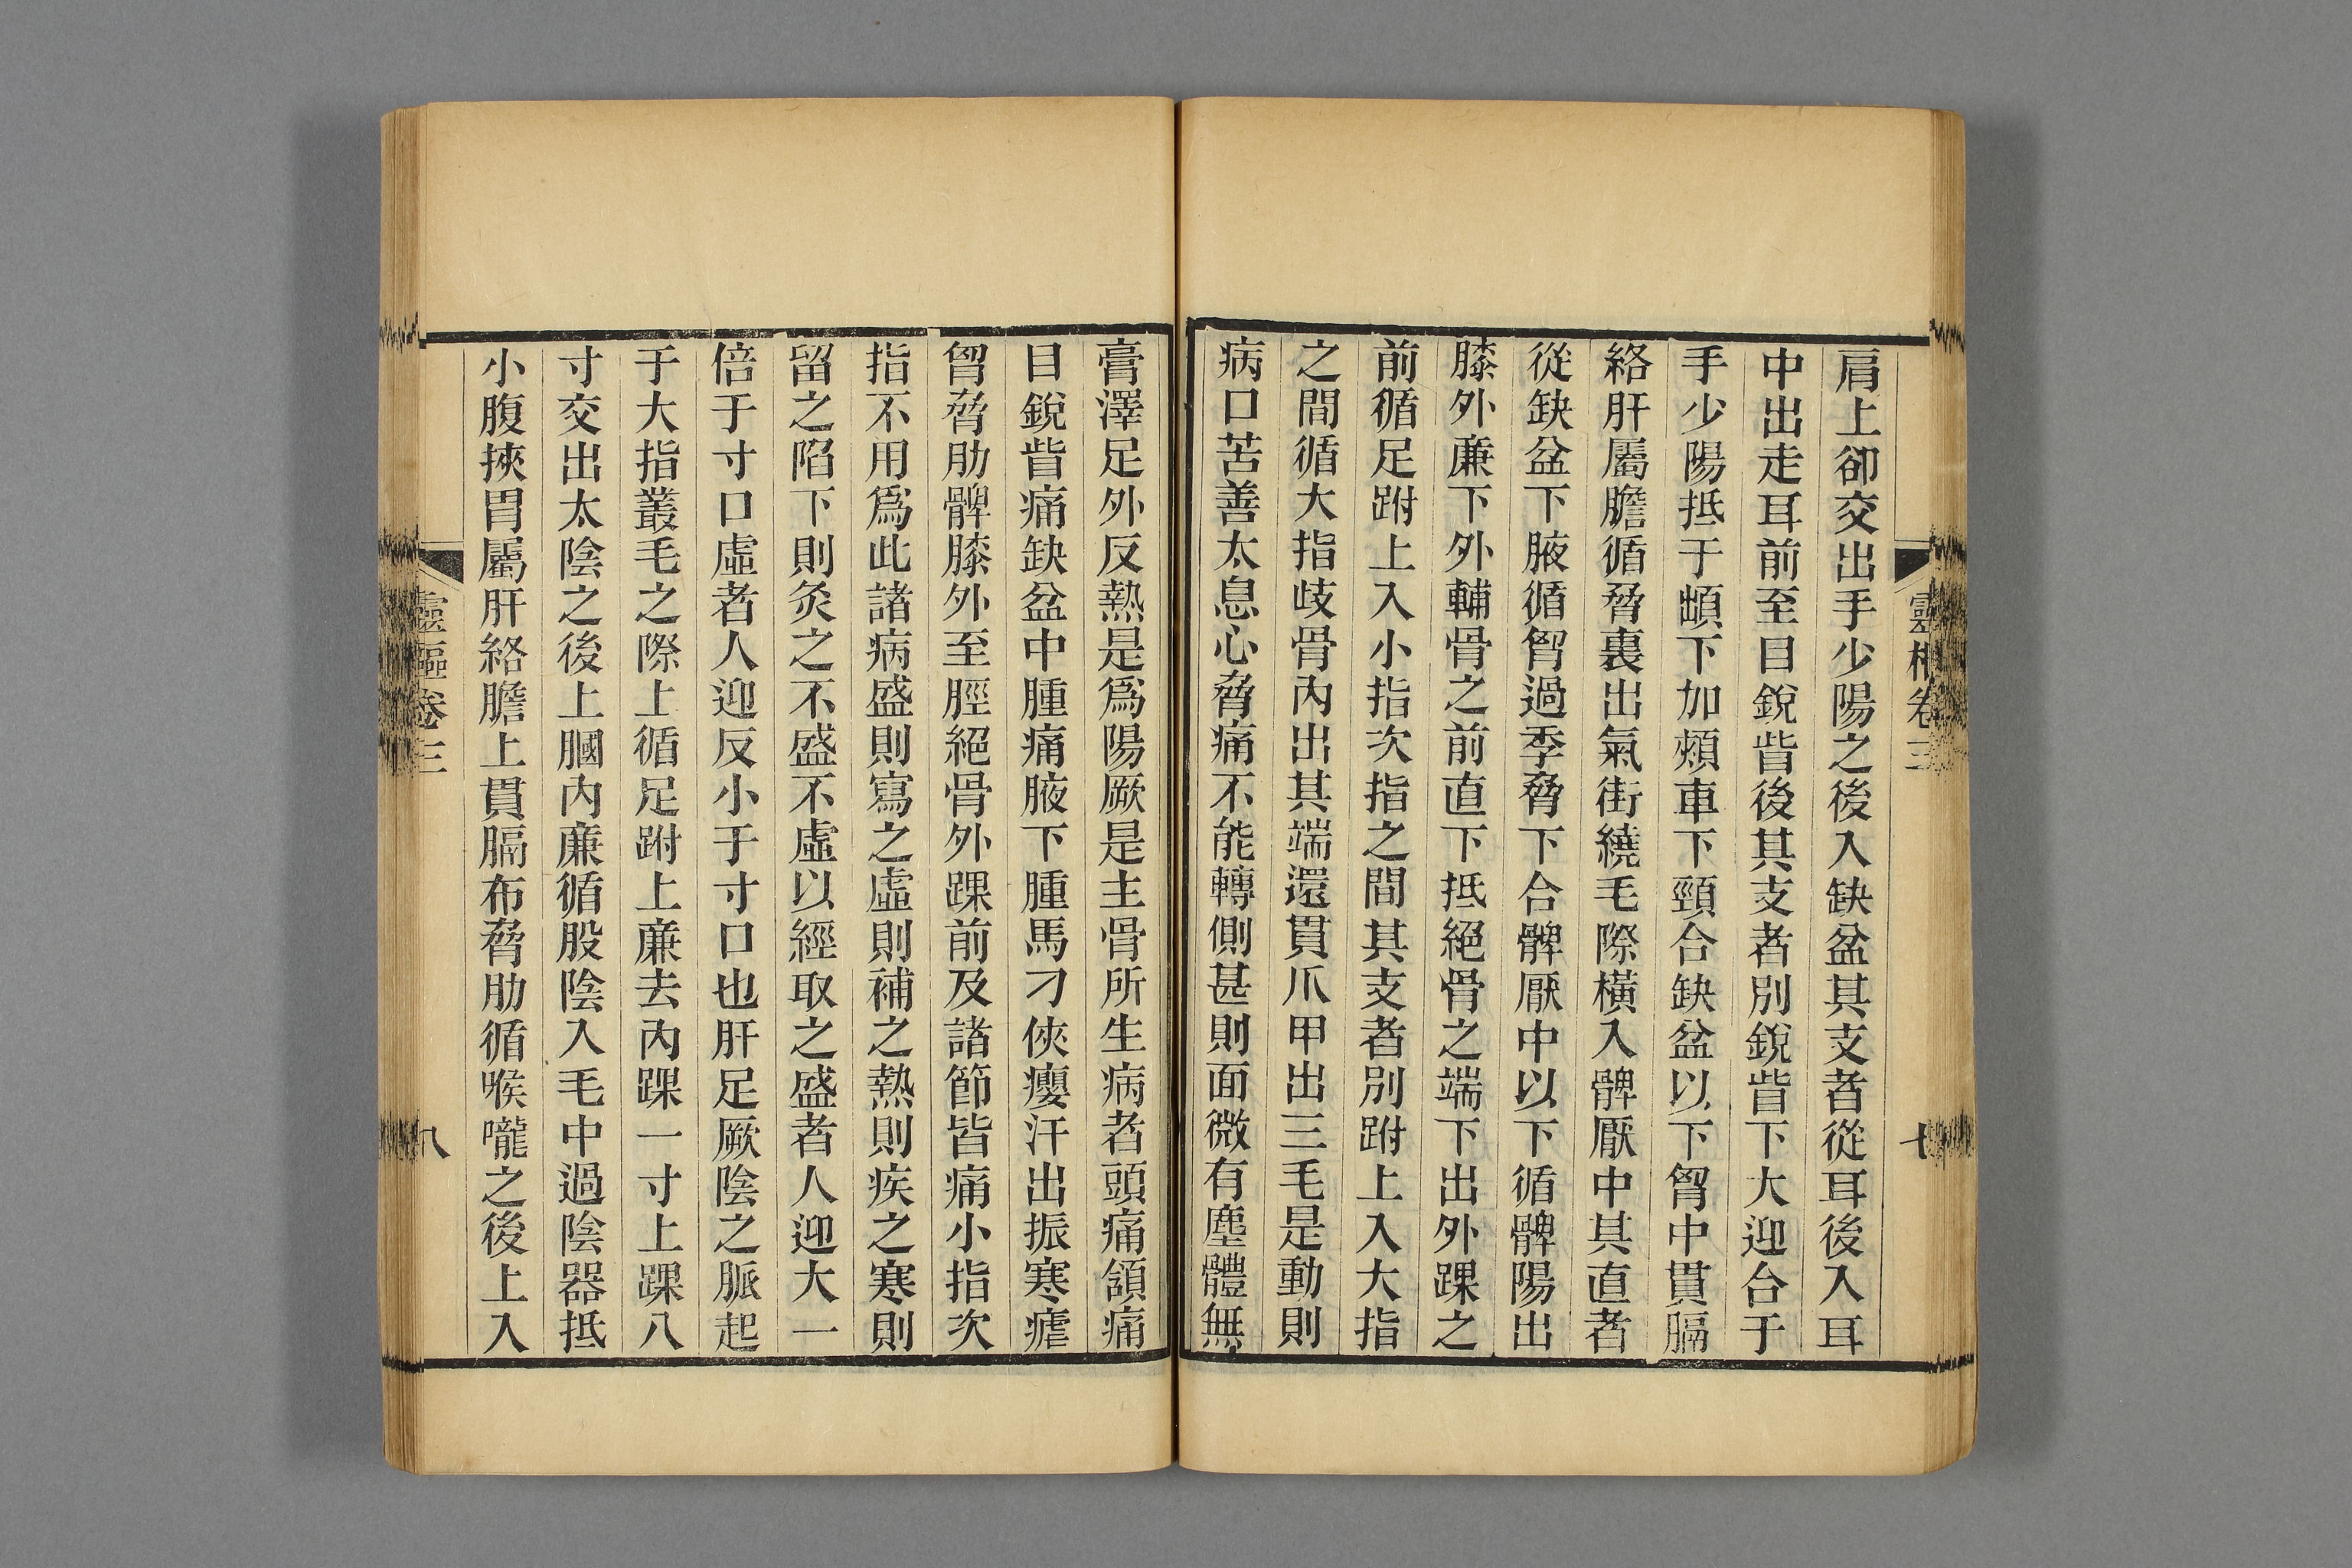 靈樞卷三
七
肩上卻交出手少陽之後入缺盆其支者從耳後入耳
中出走耳前至目銳眥後其支者別銳眥下大迎合于
手少陽抵于䪼下加頰車下頸合缺盆以下胷中貫膈
絡肝屬膽循脅裏出氣街繞毛際橫入髀厭中其直者
從缺盆下腋循胷過季脅下合髀厭中以下循髀陽出
膝外廉下外輔骨之前直下抵絕骨之端下出外踝之
前循足跗上入小指次指之間其支者別跗上入大指
之間循大指歧骨內出其端還貫爪甲出三毛是動則
病口苦善太息心脅痛不能轉側甚則面微有塵體無
膏澤足外反熱是爲陽厥是主骨所生病者頭痛頷痛
目銳眥痛缺盆中腫痛腋下腫馬刁俠癭汗出振寒瘧
胷脅肋髀膝外至脛絕骨外踝前及諸節皆痛小指次
指不用爲此諸病盛則寫之虛則補之熱則疾之寒則
留之陷下則灸之不盛不虛以經取之盛者人迎大一
倍于寸口虛者人迎反小于寸口也肝足厥陰之脈起
于大指叢毛之際上循足跗上廉去內踝一寸上踝八
寸交出太陰之後上膕內廉循股陰入毛中過陰器抵
小腹挾胃屬肝絡膽上貫膈布脅肋循喉嚨之後上入
靈樞卷三
八